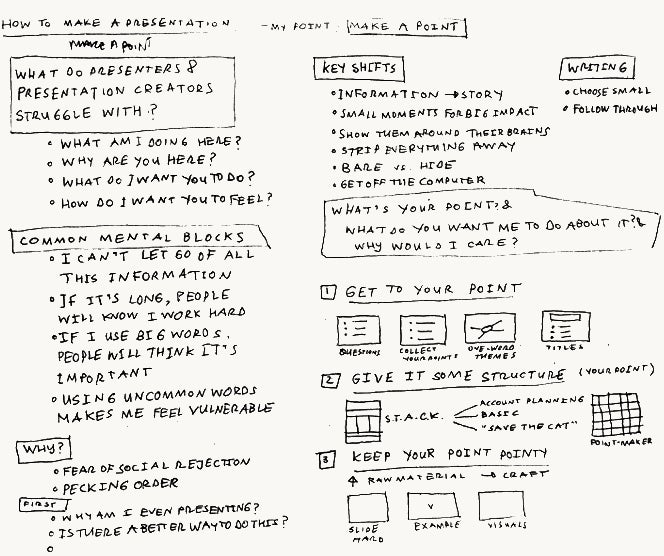 HOW TO MAKE A PRESENTATION
- MY POINT: MAKE A POINT
MAKE A POINT
WHAT DO PRESENTERS &
PRESENTATION CREATORS
STRUGGLE WITH?
• WHAT AM I DOING HERE?
• WHY ARE YOU HERE?
• WHAT DO I WANT YOU TO DO?
• HOW DO I WANT YOU TO FEEL?
COMMON MENTAL BLOCKS
• I CAN'T LET GO OF ALL
THIS INFORMATION
• IF IT'S LONG, PEOPLE
WILL KNOW I WORK HARD
• IF I USE BIG WORDS,
PEOPLE WILL THINK IT'S
IMPORTANT
• USING UNCOMMON WORDS
MAKES ME FEEL VULNERABLE
WHY?
• FEAR OF SOCIAL REJECTION
• PECKING ORDER
FIRST
• WHY AM I EVEN PRESENTING?
• IS THERE A BETTER WAY TO DO THIS?
KEY SHIFTS
• INFORMATION → STORY
• SMALL MOMENTS FOR BIG IMPACT
• SHOW THEM AROUND THEIR BRAINS
• STRIP EVERYTHING AWAY
• BARE VS. HIDE
• GET OFF THE COMPUTER
WRITING
• CHOOSE SMALL
• FOLLOW THROUGH
WHAT'S YOUR POINT? &
WHAT DO YOU WANT ME TO DO ABOUT IT? &
WHY WOULD I CARE?
1 GET TO YOUR POINT
QUESTIONS
COLLECT YOUR POINTS
ONE-WORD THEMES
TITLES
2 GIVE IT SOME STRUCTURE (YOUR POINT)
S.T.A.C.K.
ACCOUNT PLANNING
BASIC
"SAVE THE CAT"
POINT-MAKER
3 KEEP YOUR POINT POINTY
↑ RAW MATERIAL → CRAFT
SLIDE
EXAMPLE
VISUALS